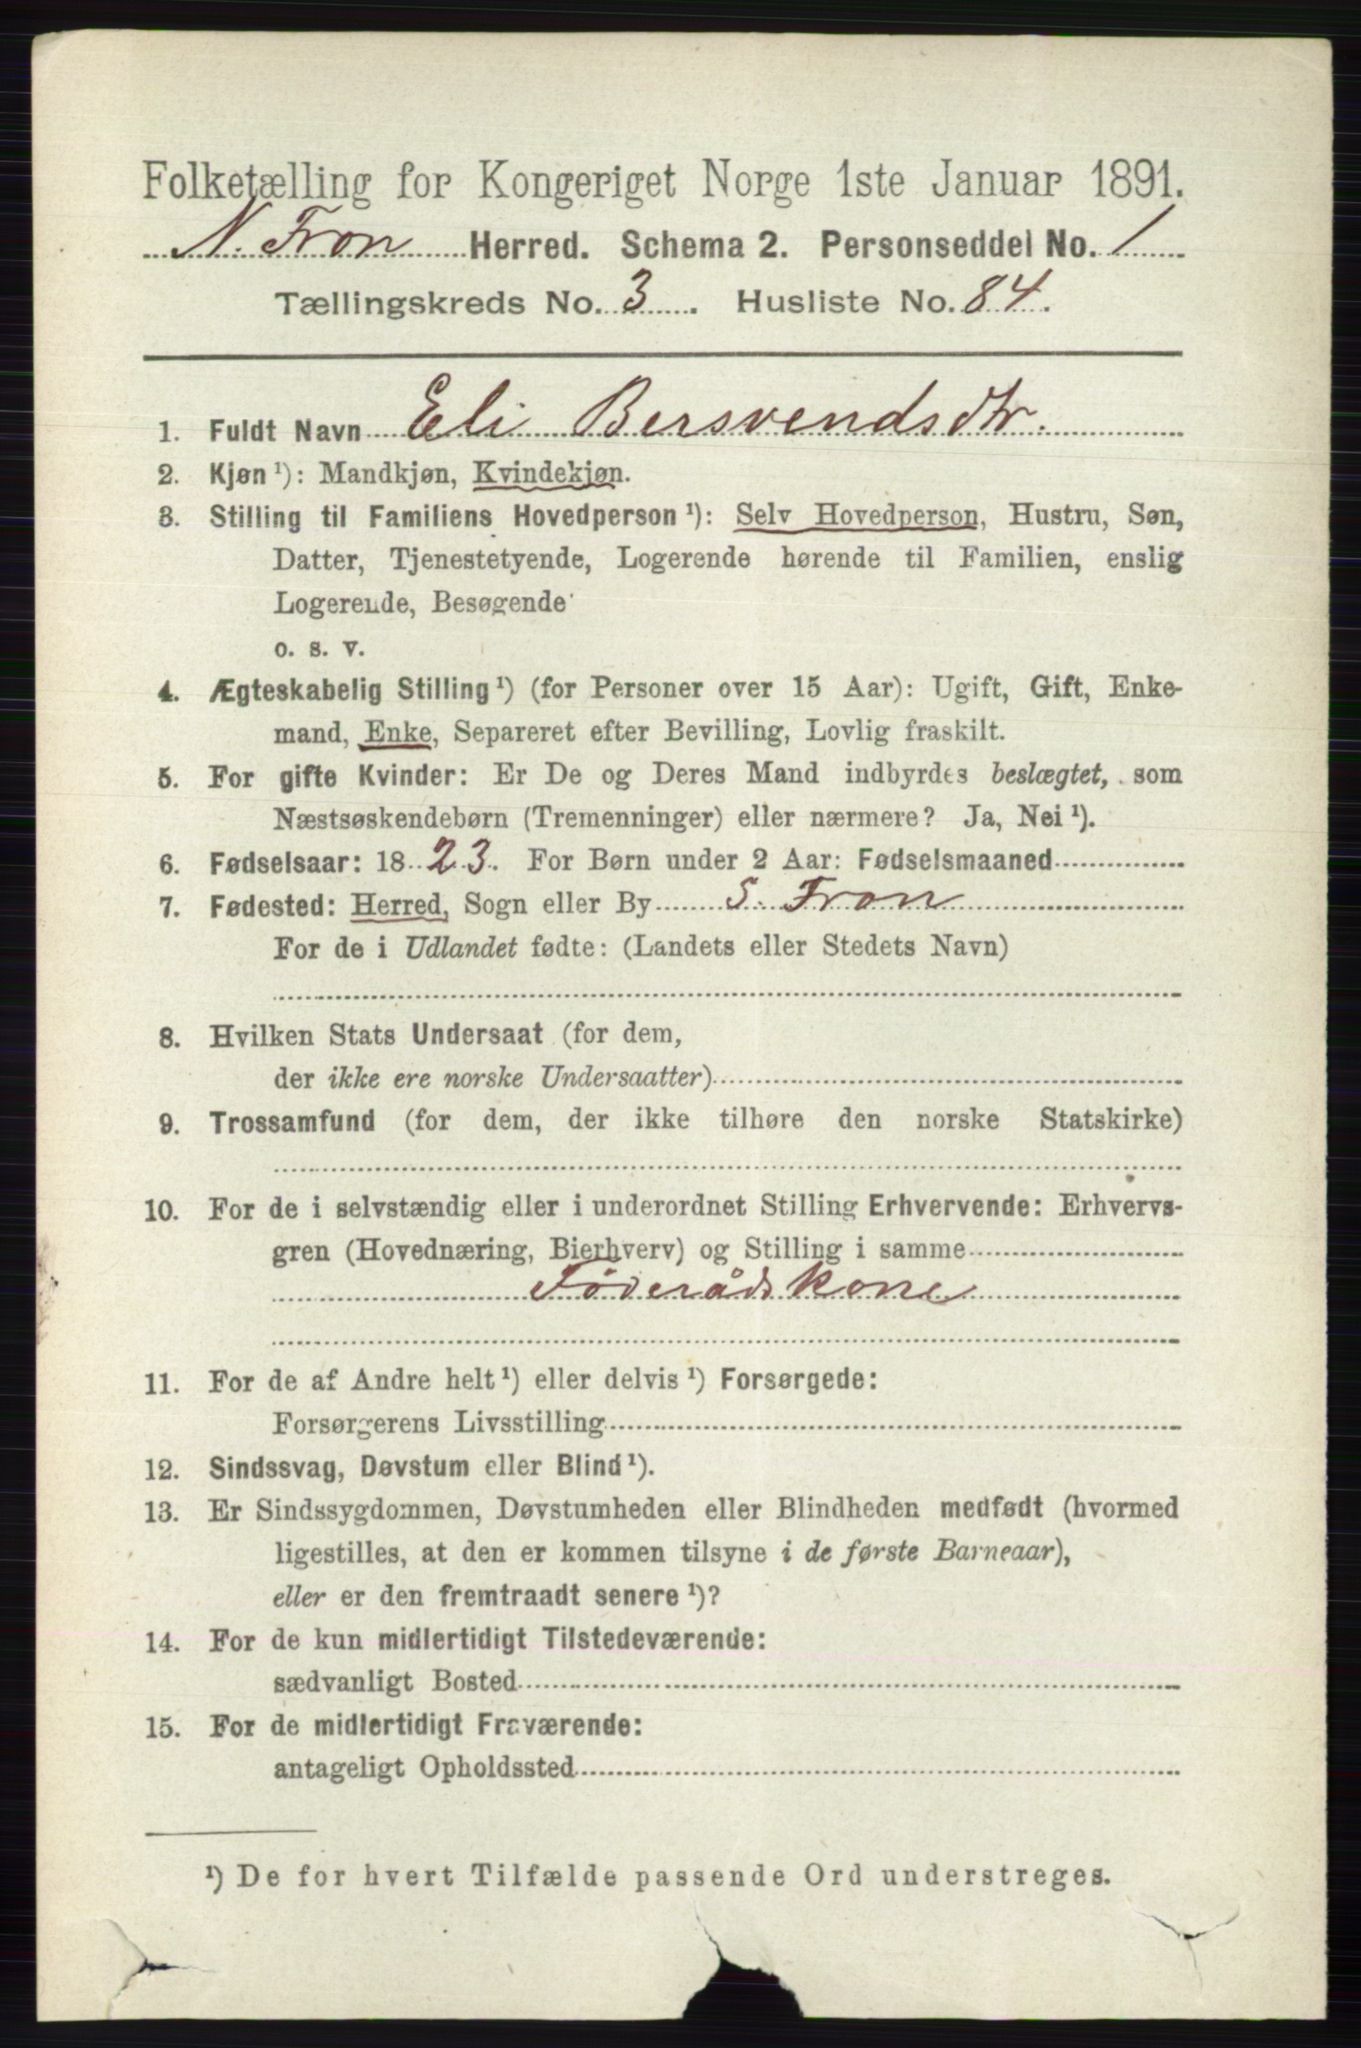 Folketælling for Kongeriget Norge 1ste Januar 1891.
N. Fron Herred. Schema 2. Personseddel No. 1
Tællingskreds No. 3. Husliste No. 84.
1. Fuldt Navn Eli Bersvendsdtr.
2. Kjøn ¹): Mandkjøn, Kvindekjøn.
3. Stilling til Familiens Hovedperson ¹): Selv Hovedperson, Hustru, Søn,
Datter, Tjenestetyende, Logerende hørende til Familien, enslig
Logerende, Besøgende
o. s. v.
4. Ægteskabelig Stilling ¹) (for Personer over 15 Aar): Ugift, Gift, Enke-
mand, Enke, Separeret efter Bevilling, Lovlig fraskilt.
5. For gifte Kvinder: Er De og Deres Mand indbyrdes beslægtet, som
Næstsøskendebørn (Tremenninger) eller nærmere? Ja, Nei ¹).
6. Fødselsaar: 1823. For Børn under 2 Aar: Fødselsmaaned
7. Fødested: Herred, Sogn eller By S. Fron
For de i Udlandet fødte: (Landets eller Stedets Navn)
8. Hvilken Stats Undersaat (for dem,
der ikke ere norske Undersaatter)
9. Trossamfund (for dem, der ikke tilhøre den norske Statskirke)
10. For de i selvstændig eller i underordnet Stilling Erhvervende: Erhvervs-
gren (Hovednæring, Bierhverv) og Stilling i samme
Føderådskone
11. For de af Andre helt ¹) eller delvis ¹) Forsørgede:
Forsørgerens Livsstilling
12. Sindssvag, Døvstum eller Blind ¹).
13. Er Sindssygdommen, Døvstumheden eller Blindheden medfødt (hvormed
ligestilles, at den er kommen tilsyne i de første Barneaar),
eller er den fremtraadt senere ¹)?
14. For de kun midlertidigt Tilstedeværende:
sædvanligt Bosted
15. For de midlertidigt Fraværende:
antageligt Opholdssted
¹) De for hvert Tilfælde passende Ord understreges.